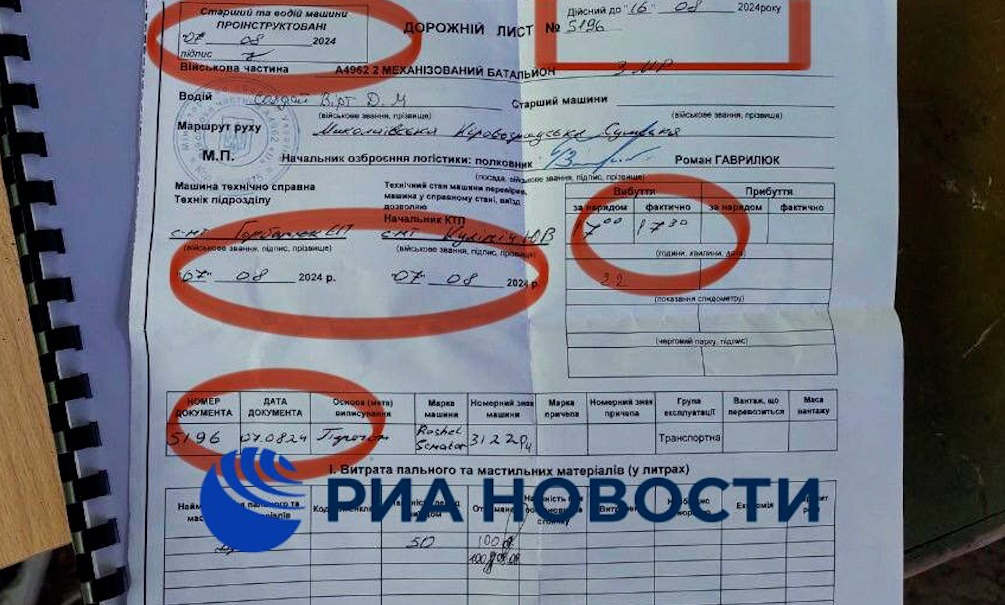 Старший та водій машини
ПРОІНСТРУКТОВАНІ
"07" 08 2024
підпис
Дійсний до "16" 08 2024року
ДОРОЖНІЙ ЛИСТ № 5196
Військова частина А4962 2 МЕХАНІЗОВАНИЙ БАТАЛЬЙОН 3 МР
Водій солдат Вірт Д. М Старший машини
(військове звання, прізвище) (військове звання, прізвище)
Маршрут руху Миколаївська Кіровоградська Сумська
М.П. Начальник озброєння логістики: полковник Роман ГАВРИЛЮК
(посада, військове звання, підпис, прізвище)
Машина технічно справна
Технік підрозділу
Технічний стан машини перевірив,
машина у справному стані, виїзд
дозволяю
Начальник КТП
с-мт с-мт
(військове звання, підпис, прізвище) (військове звання, підпис, прізвище)
"07" 08 2024 р. "07" 08 2024 р.
Вибуття Прибуття
за нарядом фактично за нарядом фактично
17 00 17 30
(години, хвилини, дата)
22
(показання спидометру)
(черговий парку, підпис)
НОМЕР ДОКУМЕНТА ДАТА ДОКУМЕНТА Основа (мета) виписування Марка машини Номерний знак машини Марка причепа Номерний знак причепа Група експлуатації Вантаж, що перевозиться Маса вантажу
5196 07.08.24 Roshel Senator 3122 Транспортна
І. Витрата пального та мастильних матеріалів (у литрах)
РИА НОВОСТИ
50 100
100